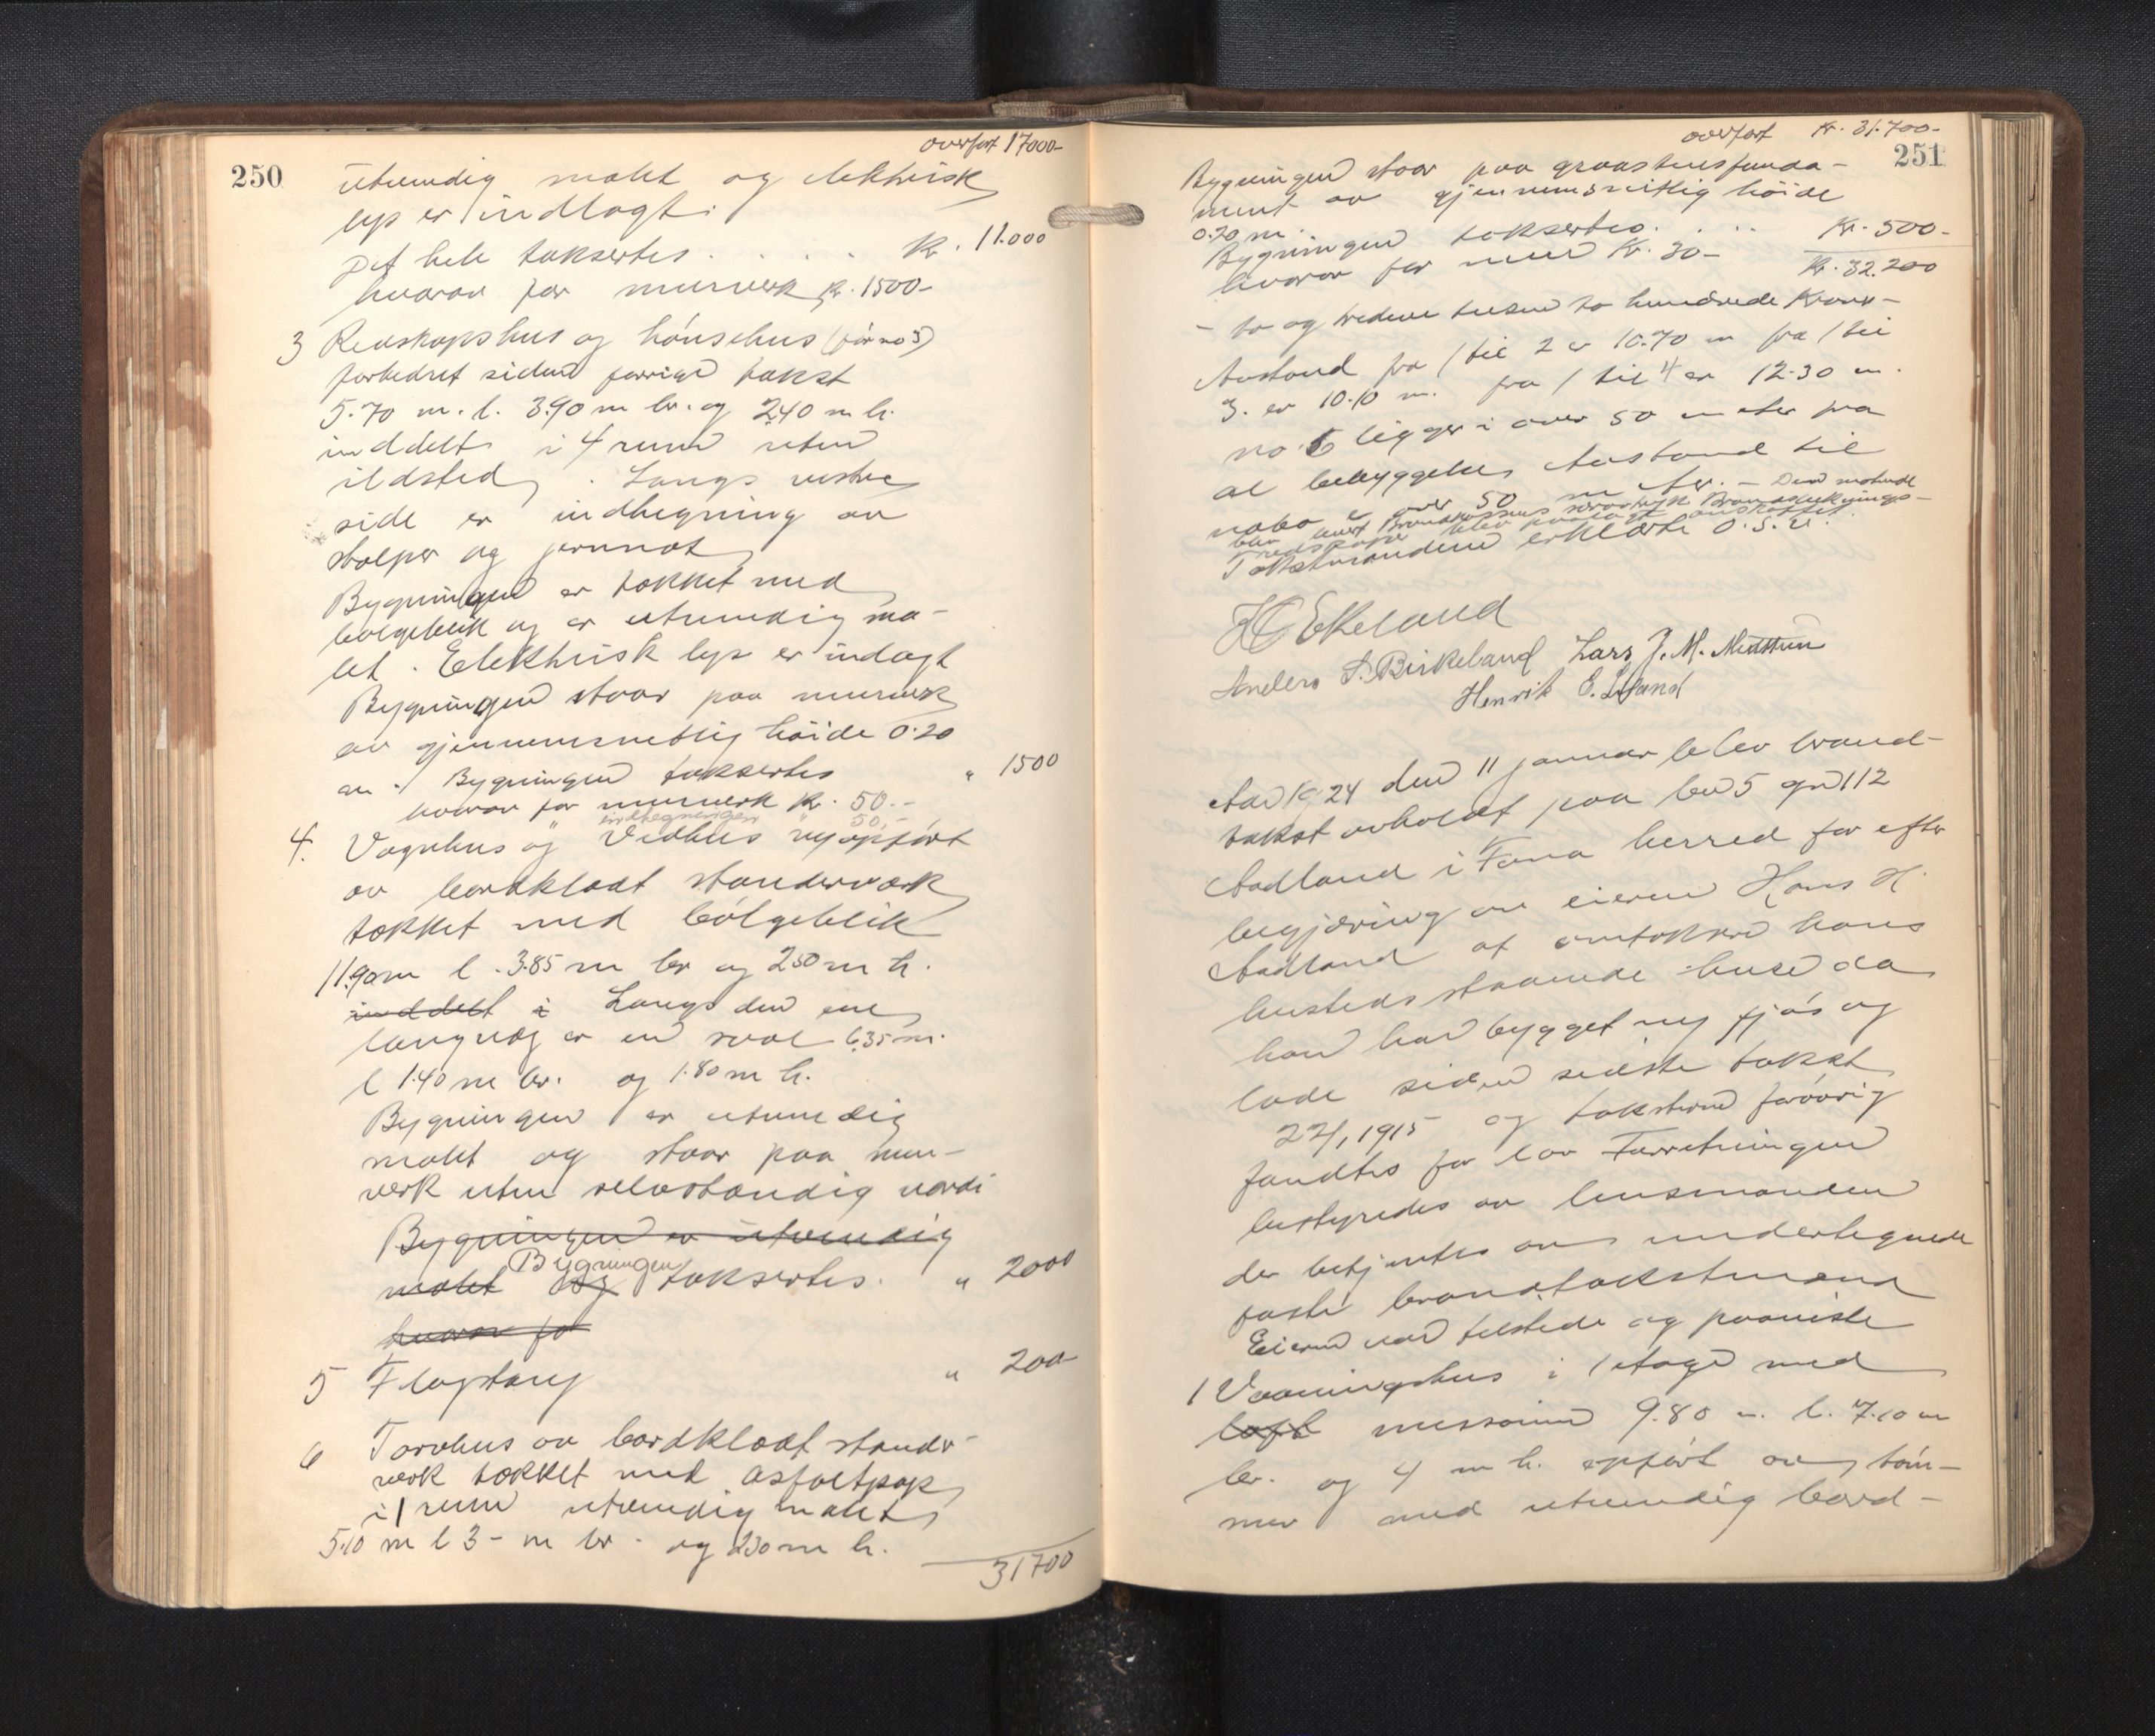 overført 17000-
250
utvendig malt og elektrisk
lys er indlagt.
Det hele taksertes . . . . kr. 11.000
hvorav for murverk kr. 1500-
3 Redskapshus og hønsehus (før no 3)
forbedret siden forrige takst
5.70 m. l. 3.90 m br. og 2.40 m h.
inddelt i 4 rum uten
ildsted. Langs vestre
side er indhegning av
stolper og
Bygningen er tækket med
bølgeblik og er utvendig ma-
let. Elektrisk lys er indlagt
Bygningen staar paa murverk
av gjennemsnitlig høide 0.20
m. Bygningen taksertes " 1500
hvorav for murverk kr. 50.-
" " indhegningen " 50.-
4. Vognhus og Vedhus ny opført
av bordklædt stenderverk
tækket med bølgeblik
11.90 m l. 3.85 m br og 2.50 m h.
inddelt i Langs den ene
langvæg er en sval 6.35 m.
l 1.40 m br. og 1.80 m h.
Bygningen er utvendig
malt og staar paa mur-
verk uten selvstændig værdi
Bygningen er utvendig
malt og Bygningen taksertes. " 2000
hvorav for
5 Flagstang " 200-
6 Torvhus av bordklædt stender-
verk tækket med asfaltpap
i 1 rum utvendig malt
5.10 m l 3- m br. og 2.30 m h.
31700
overført kr. 31.700-
251
Bygningen staar paa graastensfunda-
ment av gjennemsnitlig høide
0.70 m.
Bygningen taksertes. . . . Kr. 500-
hvorav for mur Kr. 30- Kr. 32.200
- to og tredeve tusen to hundrede Kroner -
Avstand fra 1 til 2 er 10.70 m fra 1 til
3. er 10.10 m. fra 1 til 4 er 12.30 m.
no 6 ligger i over 50 meter fra
al bebyggelse Avstand til
nabo er over 50 meter. - Den
Takstmændene erklærte O.S.V.
HC Ekeland
Anders S. Birkeland Lars J. M. Midttun
Henrik E.
Aar 1924 den 11 januar blev brand-
takst avholdt paa br 5 gr 112
Aadland i Fana herred for efter
begjæring av eieren Hans H.
Aadland at omtaksere hans
husteds staaende huse da
han har bygget ny fjøs og
lade siden sidste takst
22/1 1915 og taksterne forøvrig
fandtes for lav Forretningen
bestyredes av lensmanden
der betjentes av undertegnede
faste brandtakstmænd
Eieren var tilstede og paaviste
1 Vaaningshus i 1 etage med
loft messanin 9.80 m. l. 7.10 m
br. og 4 m h. opført av tøm-
mer med utvendig bord-